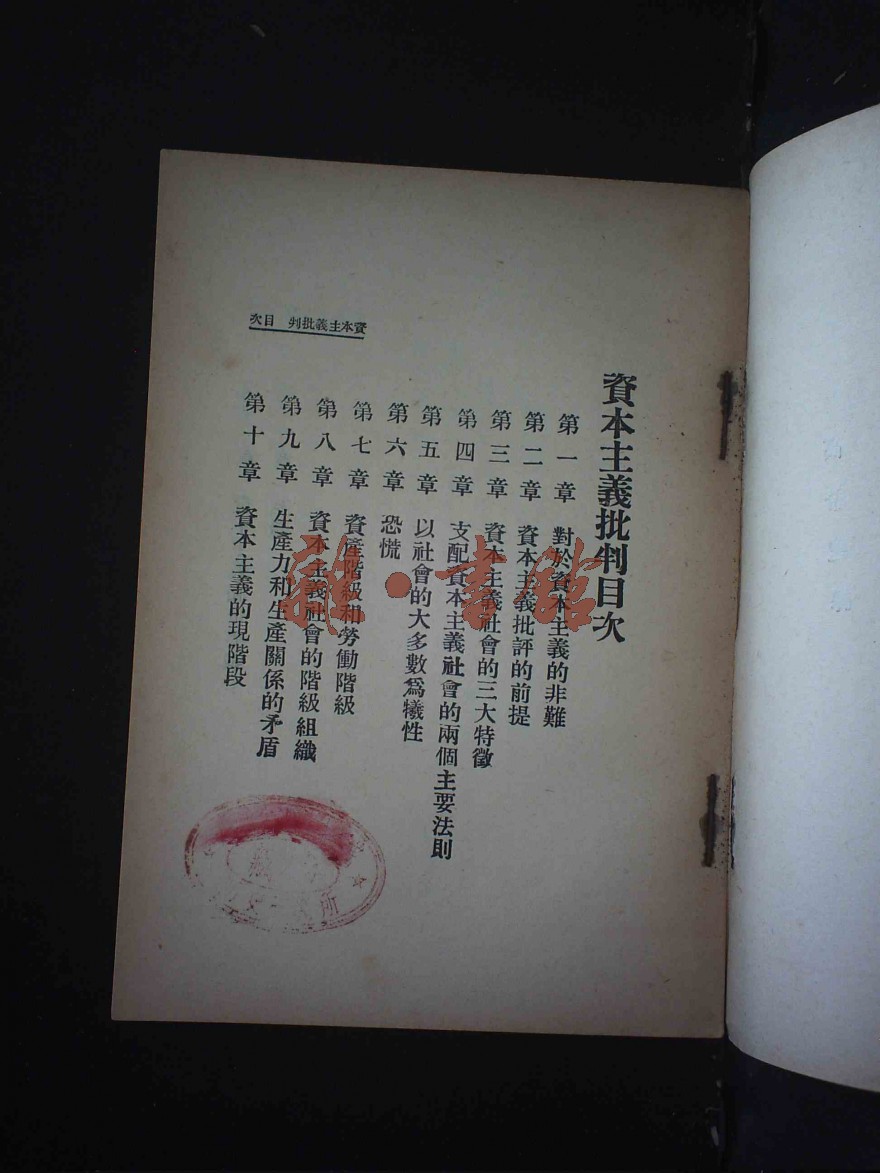 資本主義批判目次
第一章 對於資本主義的非難
第二章 資本主義批評的前提
第三章 資本主義社會的三大特徵
第四章 支配資本主義社會的兩個主要法則
第五章 以社會的大多數爲犧性
第六章 恐慌
第七章 資產階級和勞働階級
第八章 資本主義社會的階級組織
第九章 生產力和生產關係的矛盾
第十章 資本主義的現階段
資本主義批判 目次
書館
藏
所